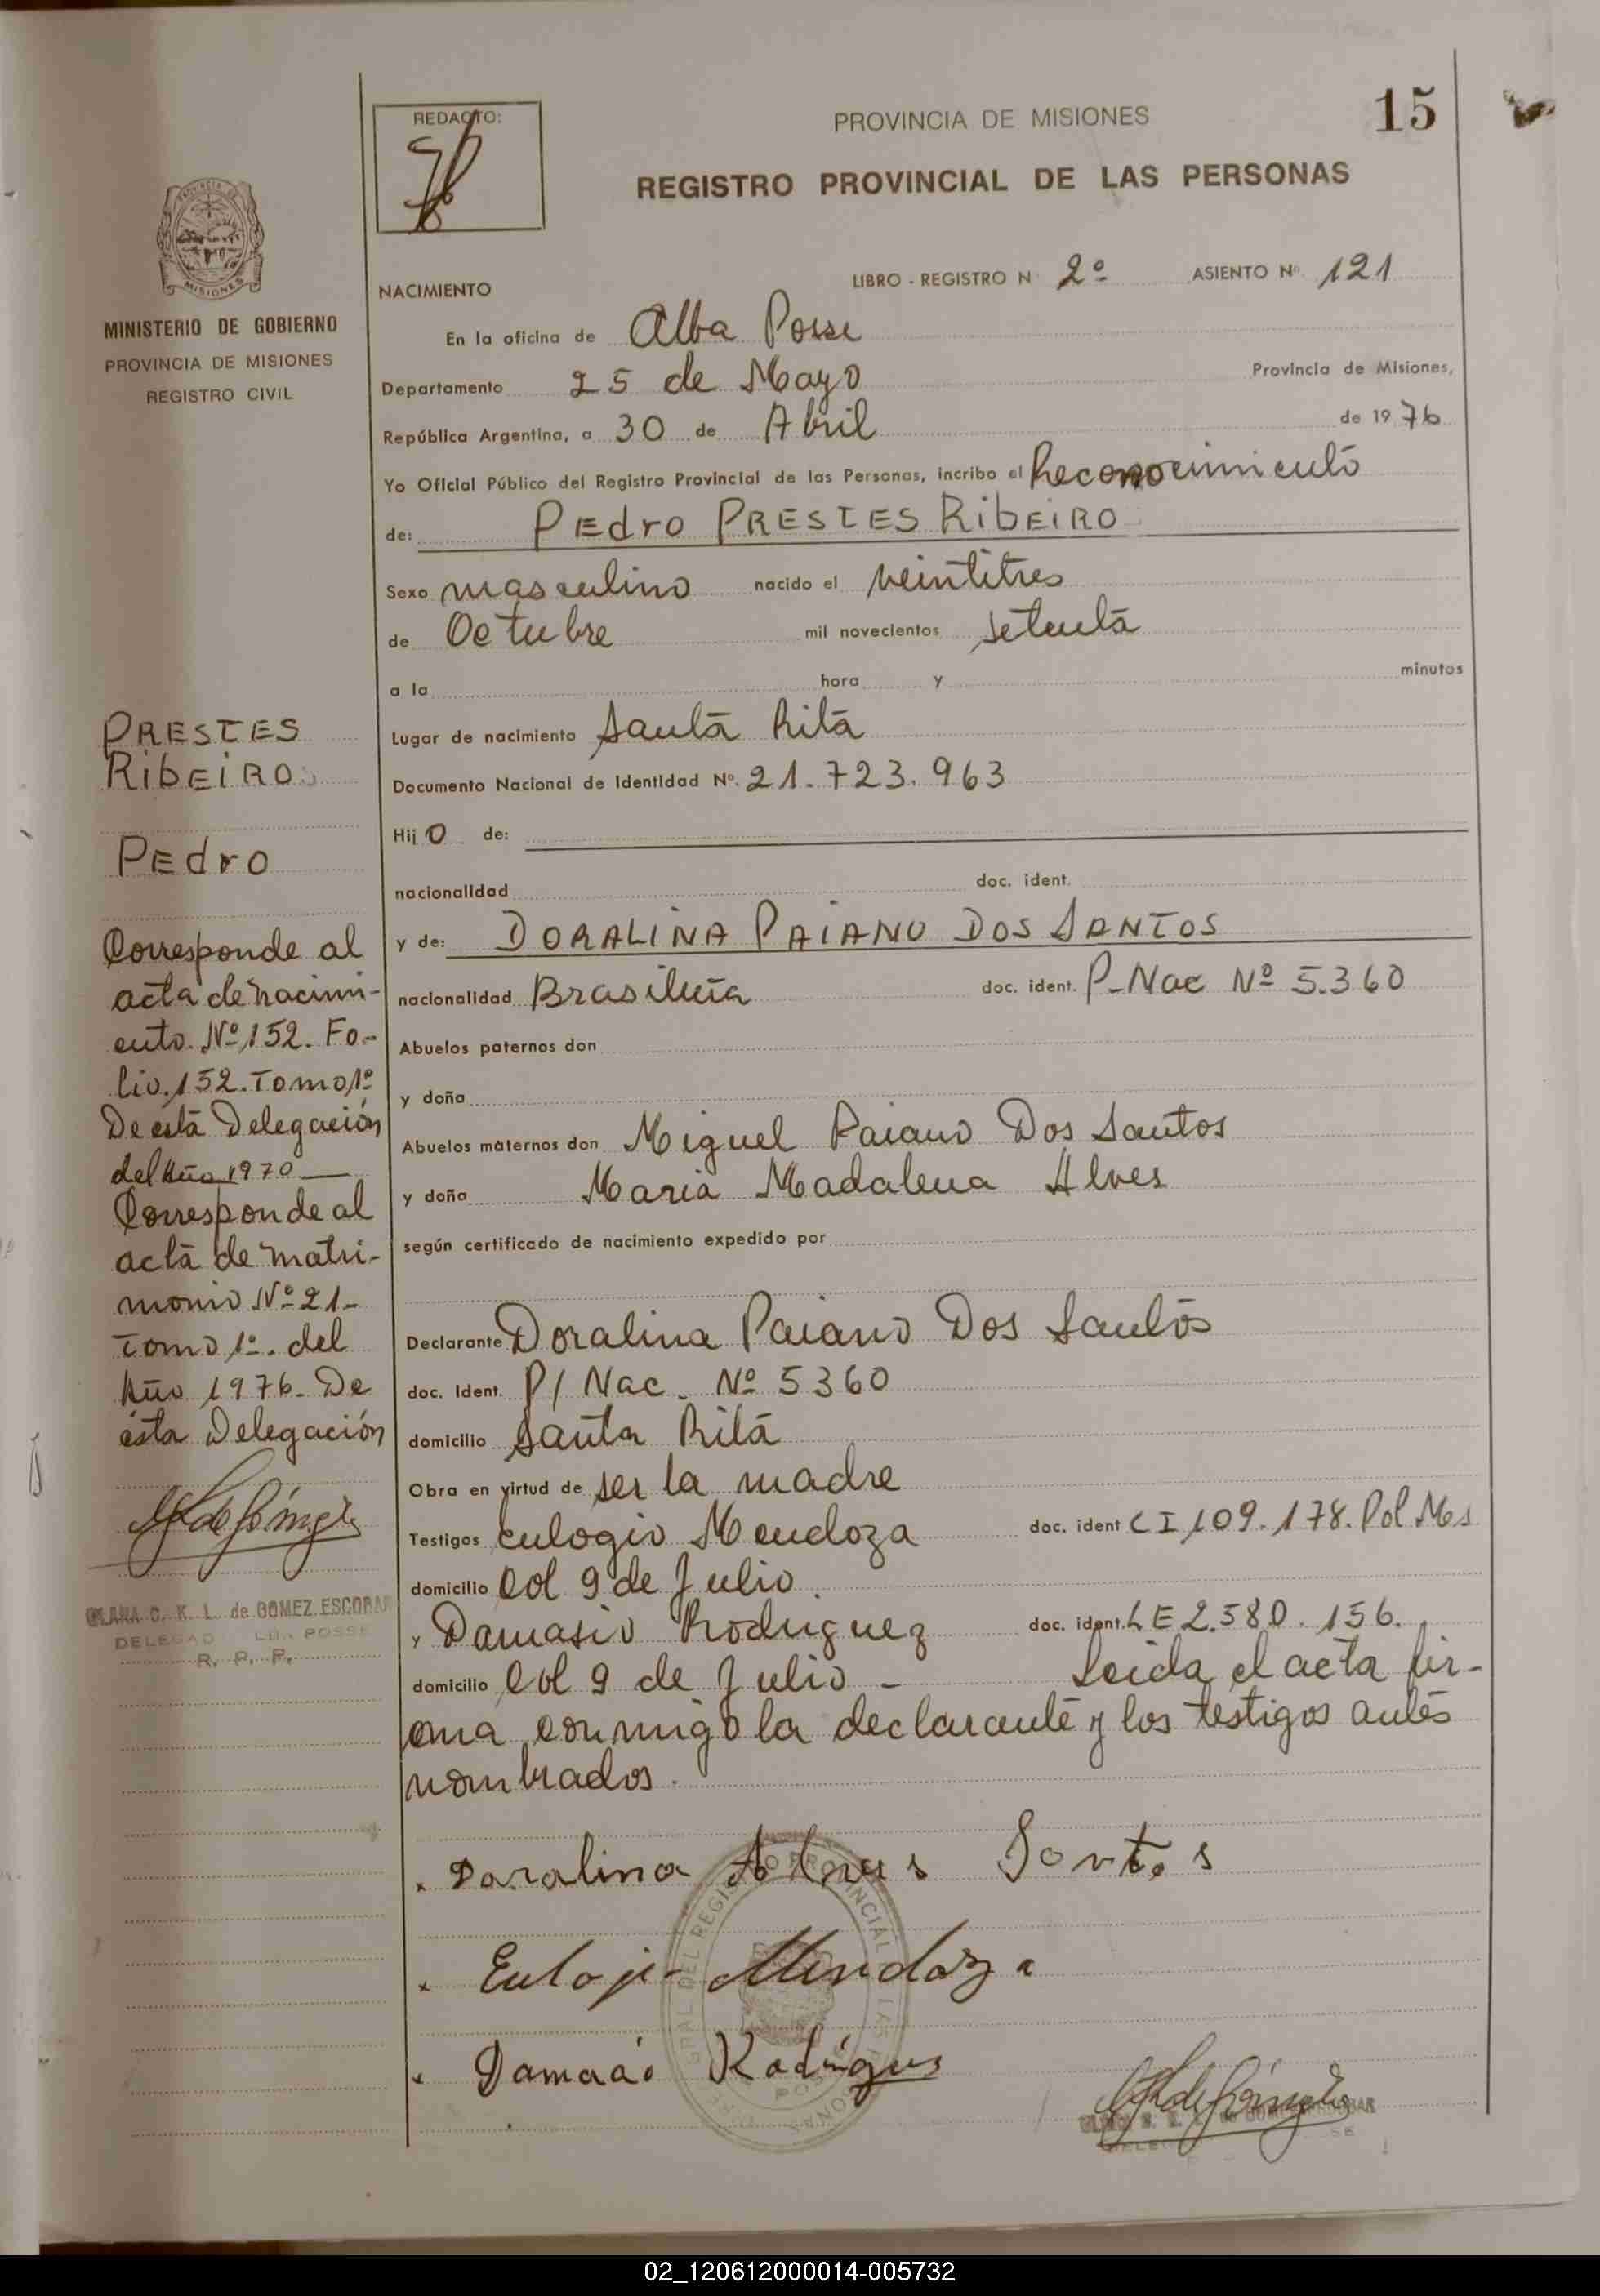 REDACTO:
PROVINCIA DE MISIONES
15
REGISTRO PROVINCIAL DE LAS PERSONAS
MISIONES
MINISTERIO DE GOBIERNO
PROVINCIA DE MISIONES
REGISTRO CIVIL
NACIMIENTO
LIBRO - REGISTRO N 2º ASIENTO Nº 121
En la oficina de Alba Posse
Departamento 25 de Mayo Provincia de Misiones,
República Argentina, a 30 de Abril de 1976
Yo Oficial Público del Registro Provincial de las Personas, incribo el Reconocimiento
de: Pedro PRESTES RibEIRO
Sexo masculino nacido el veintitres
de Octubre mil novecientos setenta
a la hora y minutos
Lugar de nacimiento Santa Rita
Documento Nacional de Identidad Nº. 21.723.963
Hijo de:
nacionalidad doc. ident.
y de: DORALINA PAIANO DOS SANTOS
nacionalidad Brasileña doc. ident. P-Nac Nº 5.360
Abuelos paternos don
y doña
Abuelos maternos don Miguel Paiano Dos Santos
y doña Maria Madalena Alves
según certificado de nacimiento expedido por
Declarante Doralina Paiano Dos Santos
doc. Ident. P/ Nac. Nº 5360
domicilio Santa Rita
Obra en virtud de ser la madre
Testigos Eulogio Mendoza doc. ident C I 109.178. Pol Ms
domicilio Col 9 de Julio
y Damasio Rodriguez doc. ident. L E 2.580.156.
domicilio Col 9 de Julio - Leida el acta fir-
ma conmigo la declarante y los testigos antes
nombrados.
PRESTES
RibEIRO
Pedro
Corresponde al
acta de nacimi-
ento. Nº 152. Fo-
lio. 152. Tomo 1º
De esta Delegación
del Año 1970
Corresponde al
acta de matri-
monio Nº 21-
Tomo 1º. del
Año 1976. De
ésta Delegación
C. K. L. de GOMEZ ESCOBAR
R. P. P.
Doralina Santos
Mendoza
02_120612000014-005732